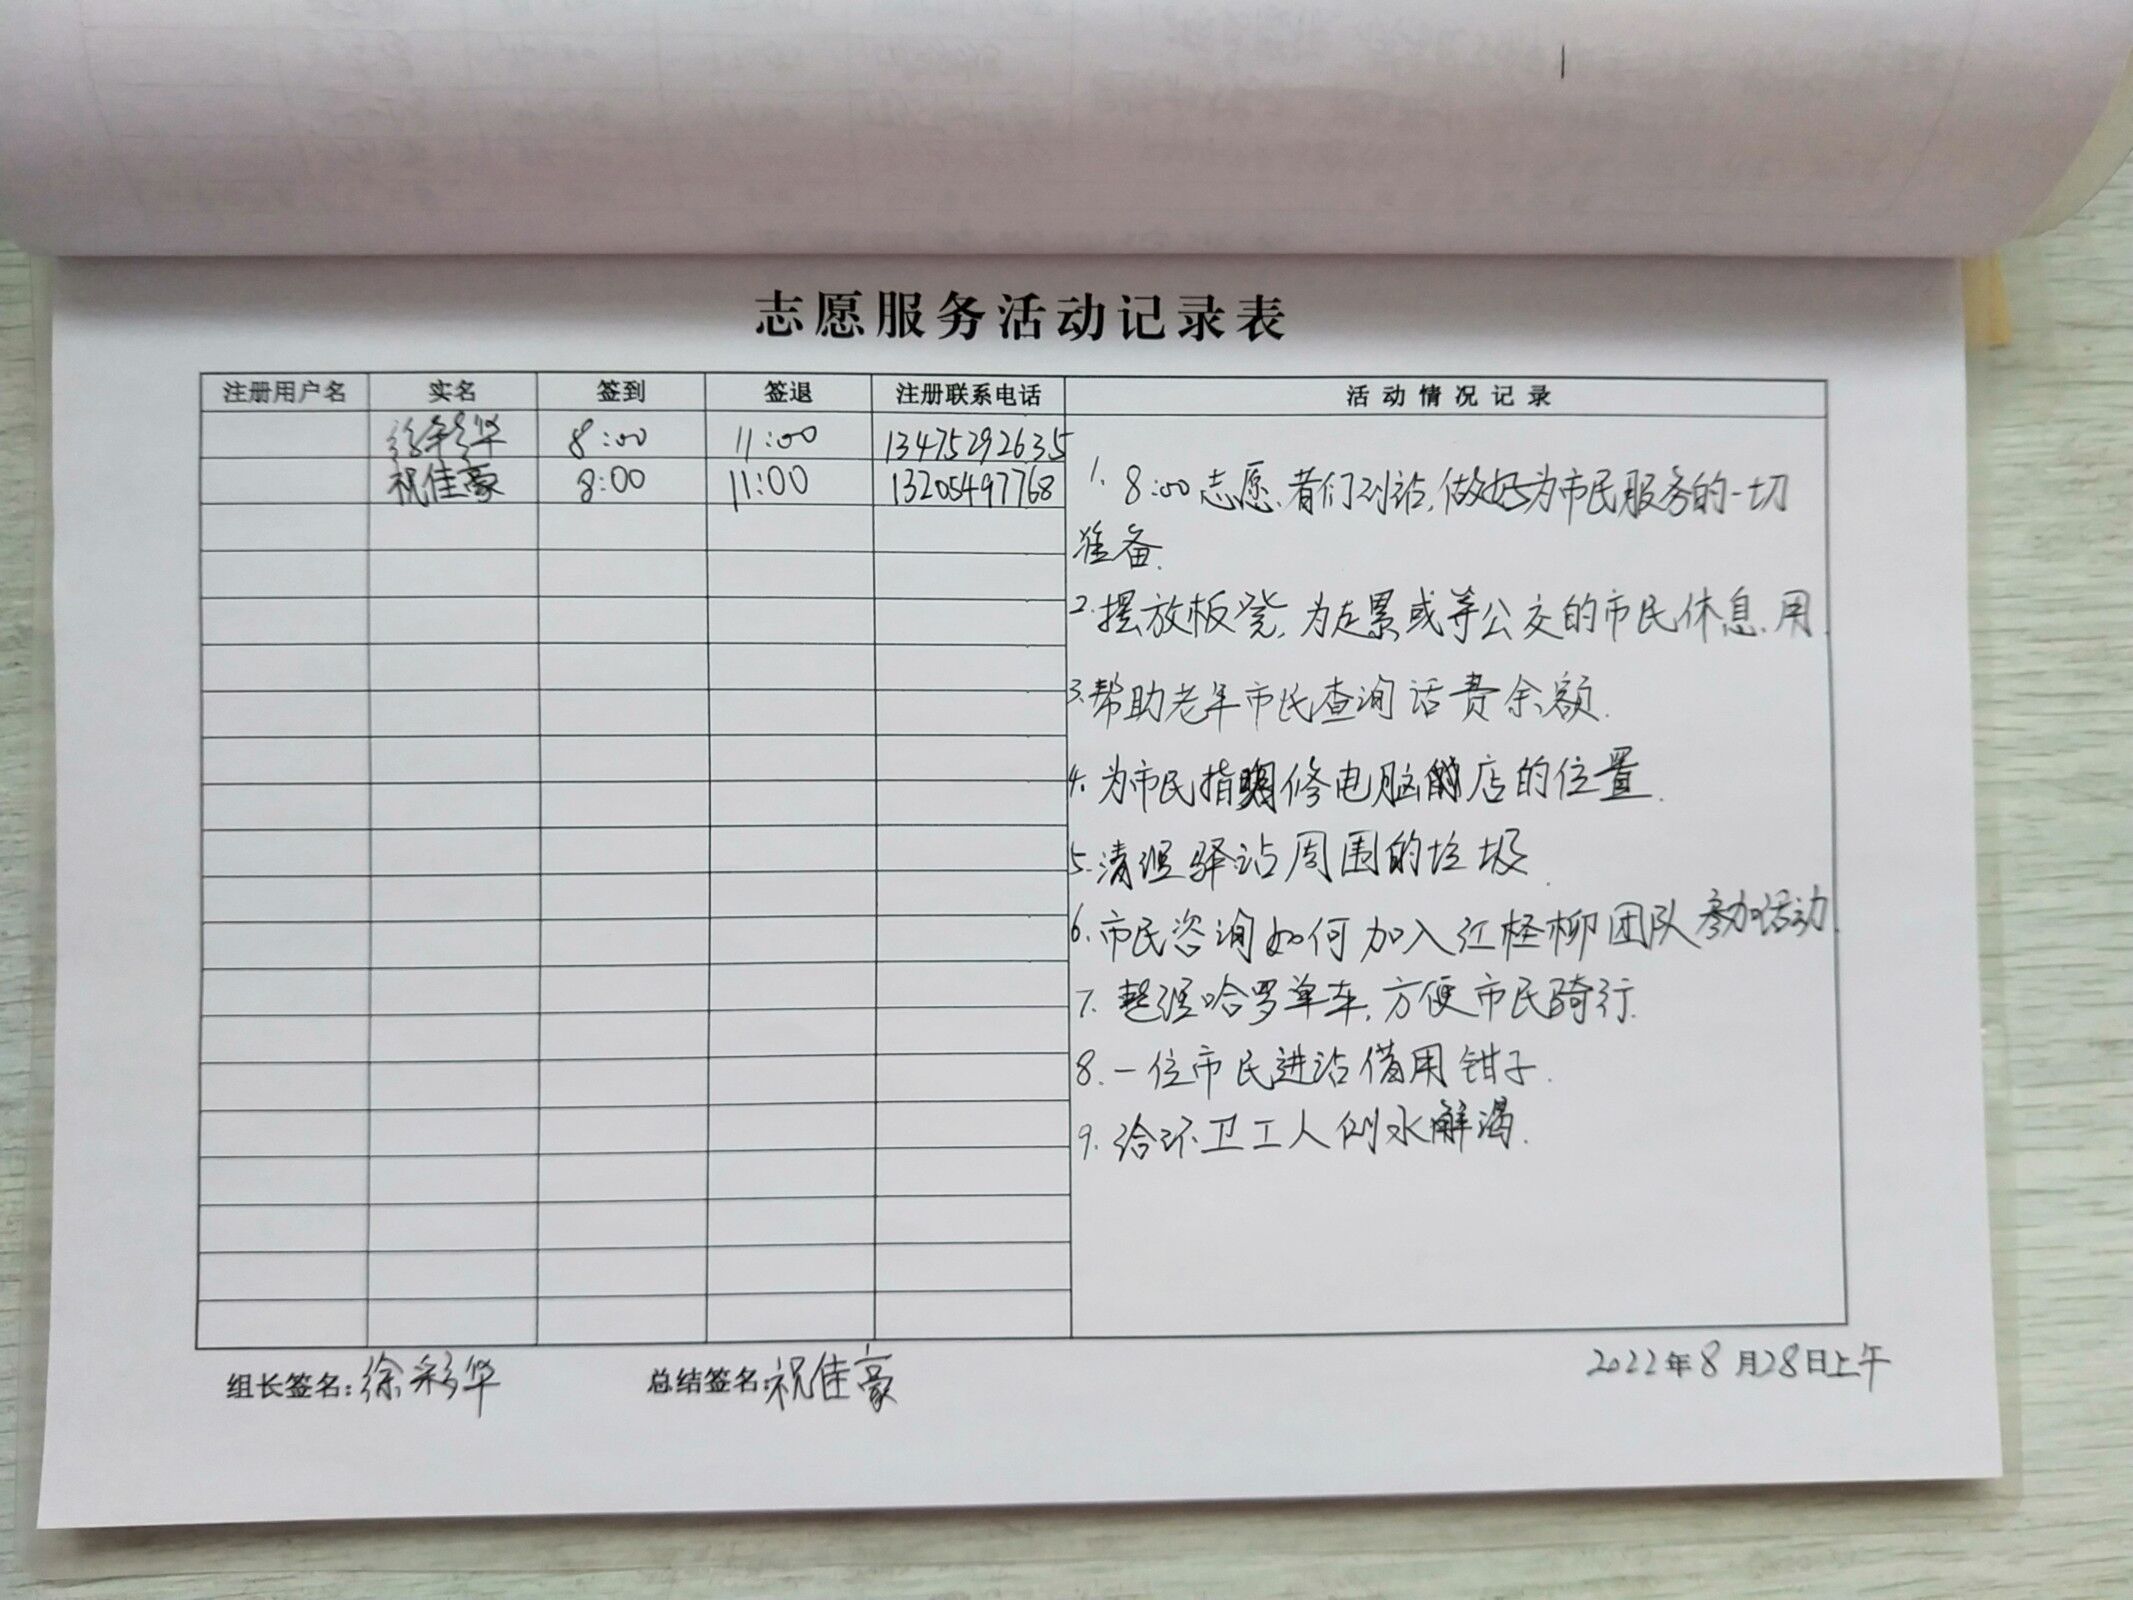 志愿服务活动记录表
注册用户名 实名 签到 签退 注册联系电话 活动情况记录
徐彩华 8:00 11:00 13475292635
祝佳豪 8:00 11:00 13205497768
1. 8:00志愿者们到站,做好为市民服务的一切
准备.
2.摆放板凳,为走累或等公交的市民休息用.
3.帮助老年市民查询话费余额.
4.为市民指明修电脑的店的位置.
5.清理驿站周围的垃圾.
6.市民咨询如何加入红柽柳团队参加活动.
7.整理哈罗单车,方便市民骑行.
8.一位市民进站借用钳子.
9.给环卫工人倒水解渴.
组长签名:徐彩华 总结签名:祝佳豪 2022年8月28日上午